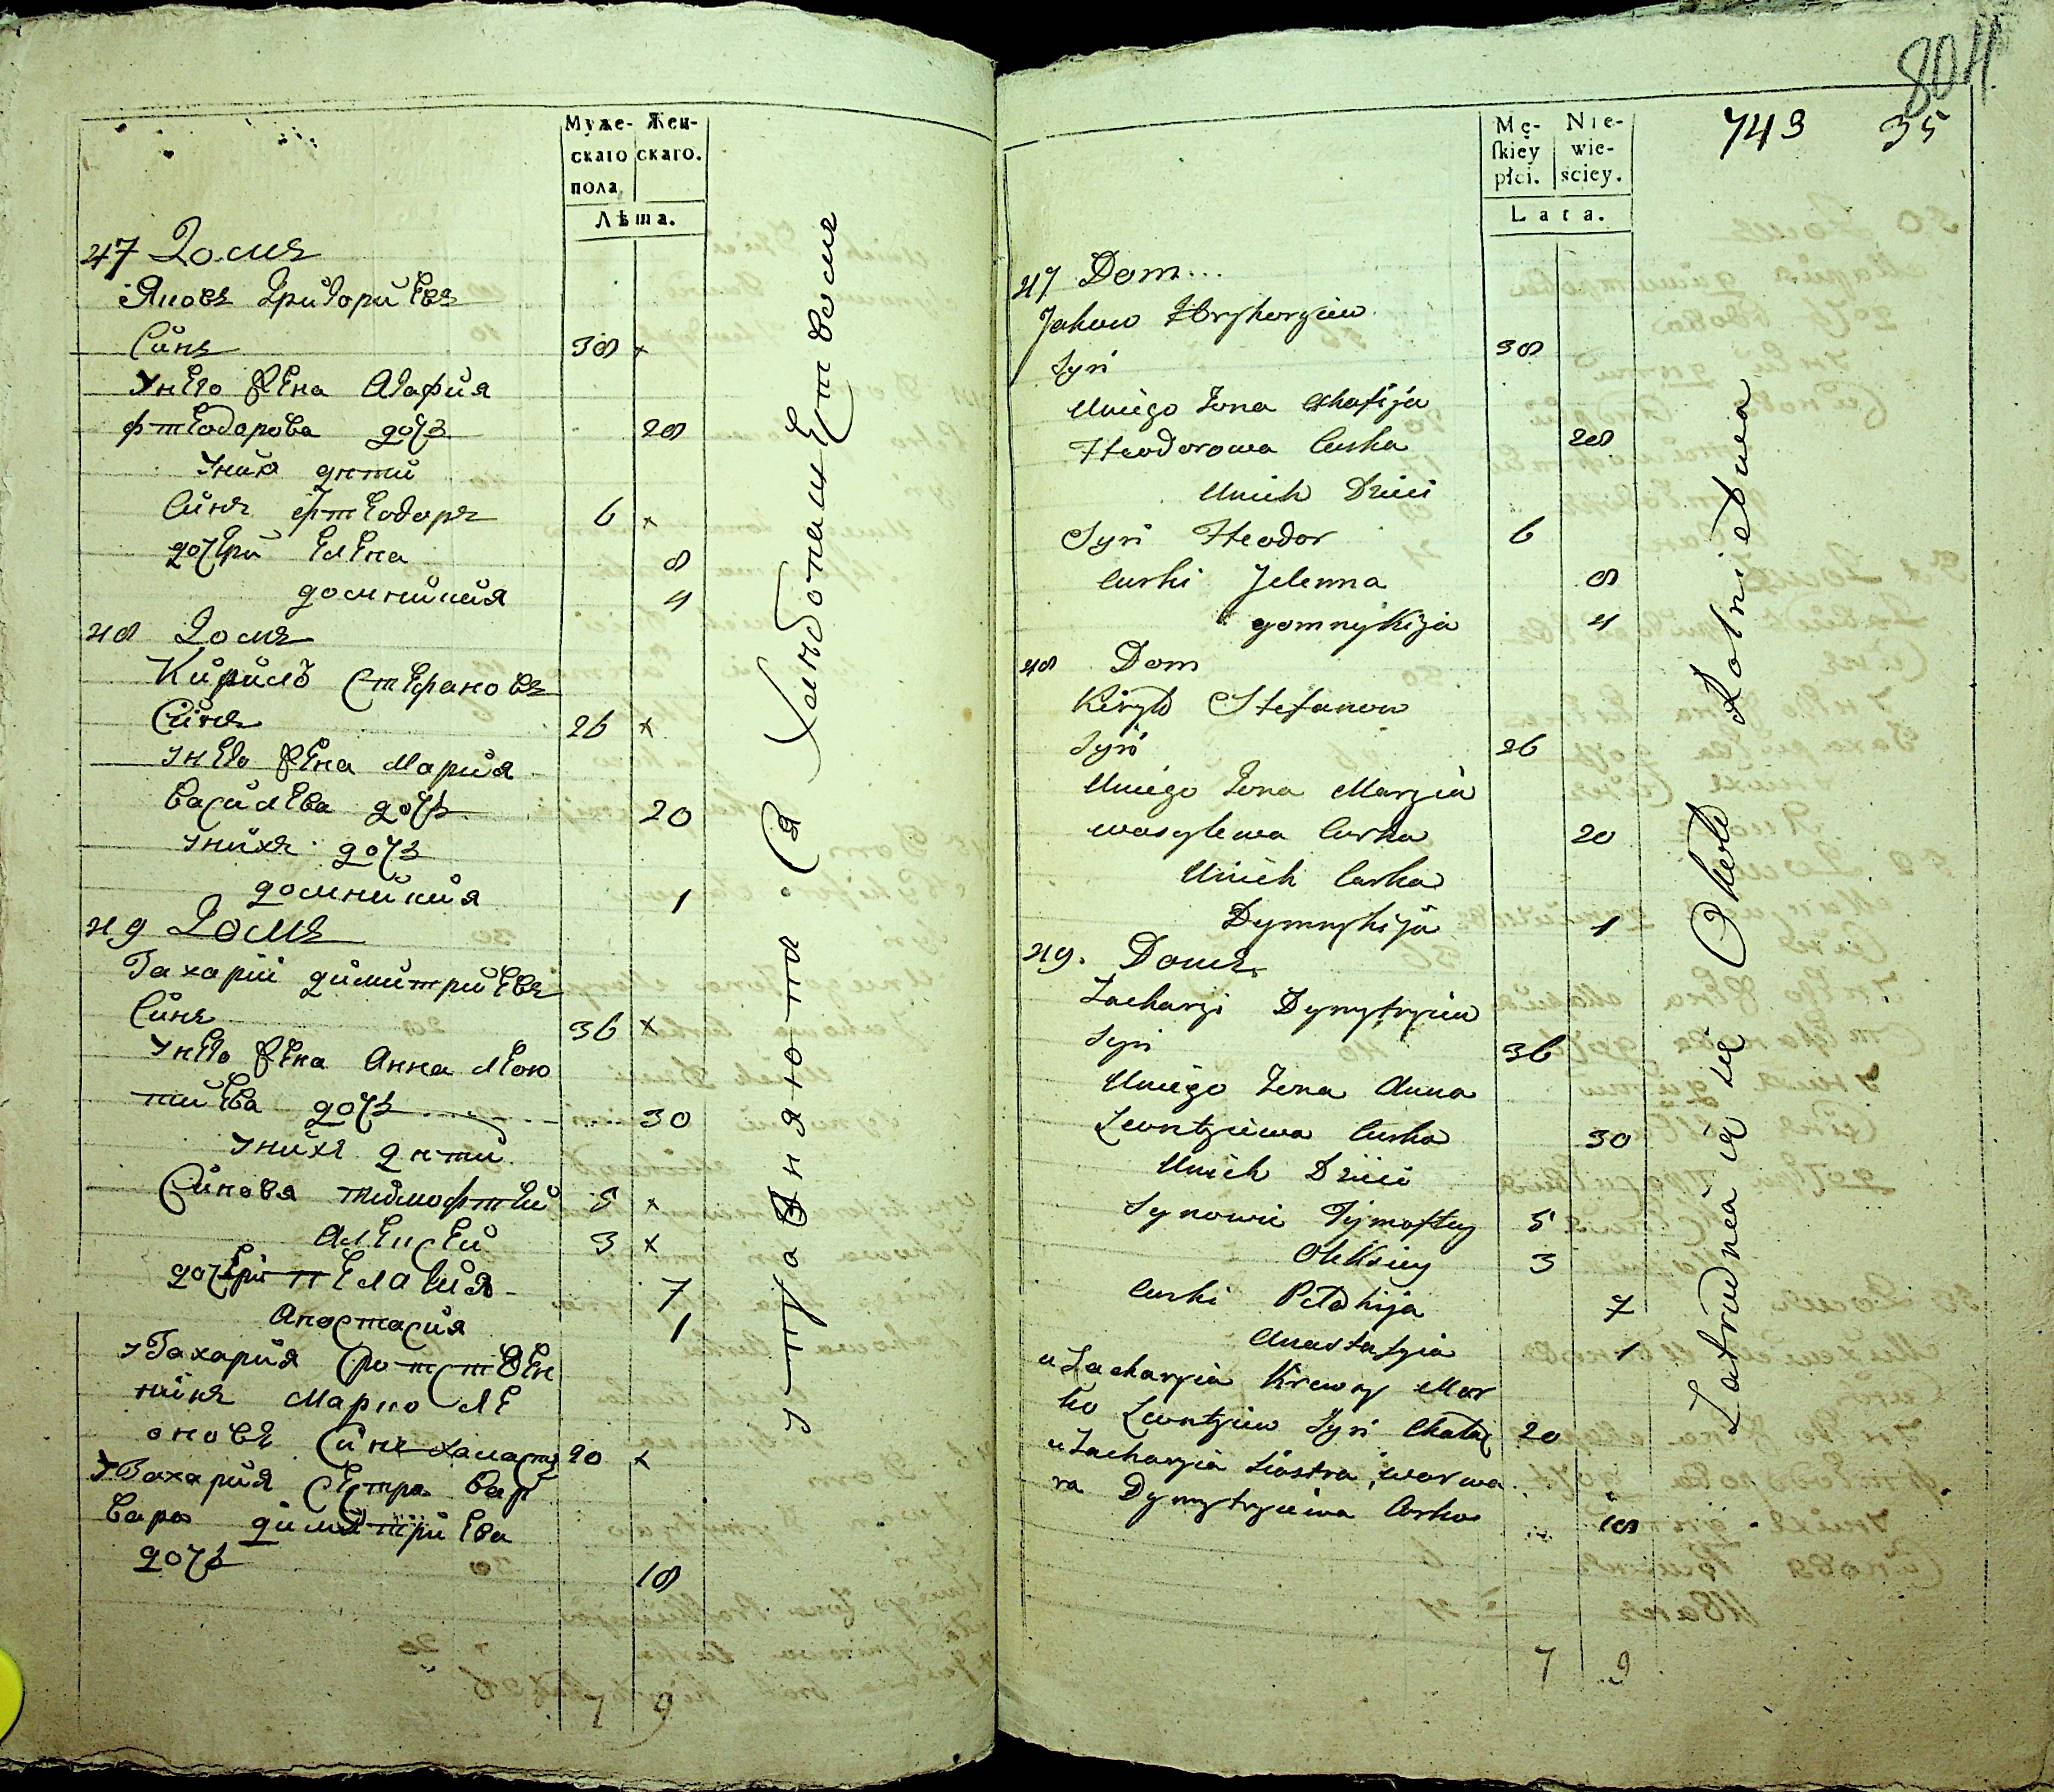 Муже-
скаго
пола.
Жен-
скаго.
Лѣта.
47 Домъ
Яковъ Григориевъ
Синъ 38 x
Унего жена Агафия
фтеодорова дочъ 28
Униха дѣти
Синъ Фтеодоръ 6 x
дочери Елена 8
домникия 4
48 Домъ
Кирило Стефановъ
Синъ 26 x
Унего жена Мария
Василева дочъ 20
Унихъ дочъ
домникия 1
49 Домъ
Захарий димитриевъ
Синъ 36 x
Унего жена Анна Леон
тиева дочъ 30
Унихъ дѣти
Синовя тимофтей 5 x
Алексей 3 x
дочери пелагия 7
Анастасия 1
У Захария Сротствен
никъ Марко Ле
оновъ Синъ халасты 20 x
У Захария Сестра вар
вара димитриева
дочъ 18
7 9
упражняютца.Ся Хлиботашеством
804
743 35
Mę-
ſkiey
płci.
Nie-
wie-
ściey.
Lata.
47 Dom...
Jakow Hryhoryiew
Syn 38
Uniego Żona Ahafija
Fteodorowa Curka 28
Unich Dzieci
Syn Fteodor 6
Curki Jelenna 8
gomnykija 4
48 Dom
Kiryło Stefanow
Syn 26
Uniego Żona Maryia
wasylewa Curka 20
Unich Curka
Dymnykija 1
49. Domъ
Zacharyi Dymytryiew
Syn 36
Uniego Żona Anna
Leontyiewa Curka 30
Unich Dzieci
Synowie Tymoftey 5
Oleksiey 3
Curki Pelahija 7
Anastasyia 1
u Zacharyia Krewny Mar
ko Leontyiew Syn Chałas 20
u Zacharyia Siostra warwa
ra Dymytryiewa Curka 18
7 9
Zatrudnea ią się Około Rolnictwa